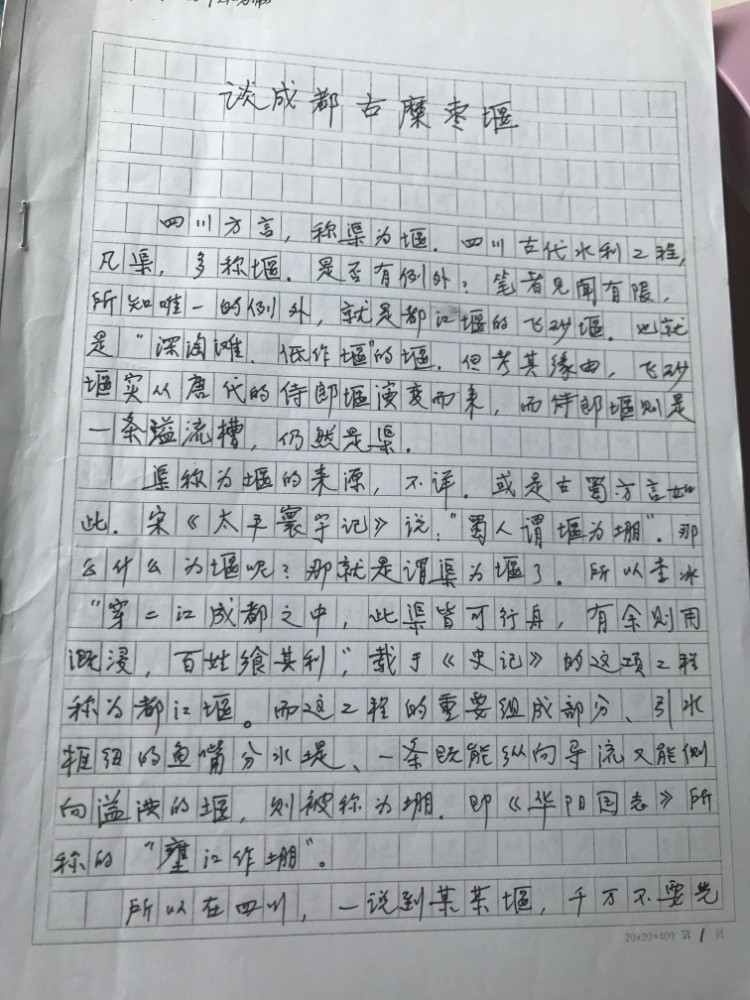 谈成都古糜枣堰
四川方言，称渠为堰．四川古代水利工程，
凡渠，多称堰．是否有例外？笔者见闻有限，
所知唯一的例外，就是都江堰的飞砂堰．也就
是“深淘滩．低作堰”的堰．但考其缘由，飞砂
堰实从唐代的侍郎堰演变而来，而侍郎堰则是
一条溢流槽，仍然是渠．
渠称为堰的来源，不详．或是古蜀方言如
此．宋《太平寰宇记》说：“蜀人谓堰为堋”．那
么什么为堰呢？那就是谓渠为堰了．所以李冰
“穿二江成都之中，此渠皆可行舟，有余则用
溉浸，百姓飨其利”，载于《史记》的这项工程
称为都江堰。而这工程的重要组成部分、引水
枢纽的鱼嘴分水堤、一条既能纵向导流又能侧
向溢洪的堰，则被称为堋．即《华阳国志》所
称的“壅江作堋”。
所以在四川，一说到某某堰，千万不要先
20x20=400 第 1 页